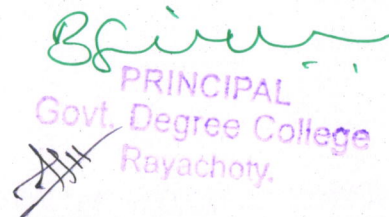 PRINCIPAL
Govt. Degree College
Rayachoty.